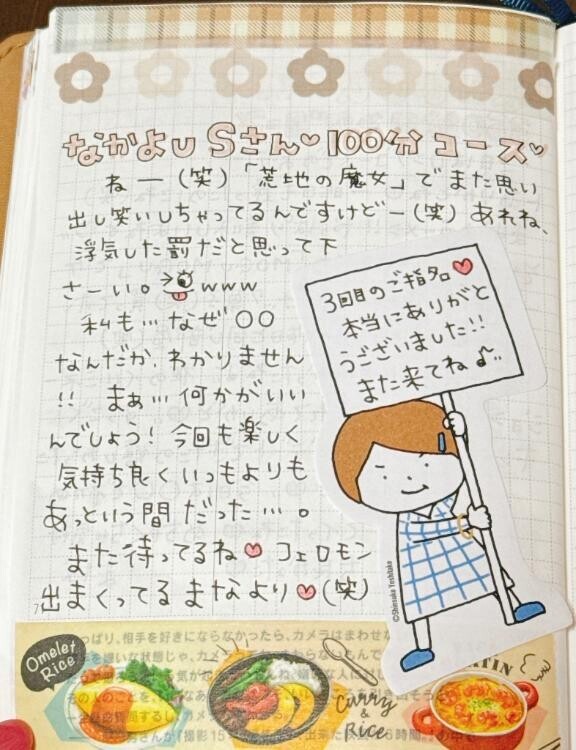 なかよし Sさん♡100分 コース♡
ねー(笑)「荒地の魔女」でまた思い
出し笑いしちゃってるんですけどー(笑)あれね、
浮気した罰だと思って下
さーい。www
私も…なぜ〇〇
なんだか、わかりません
!! まぁ…何かがいい
んでしょう!今回も楽しく
気持ち良くいつもよりも
あっという間だった…。
また待ってるね♥フェロモン
出まくってる まなより♥(笑)
3回目のご指名♥
本当にありがと
うございました!!
また来てね♪…
©Shinsuke Yoshitake
Omelet Rice
Curry & Rice